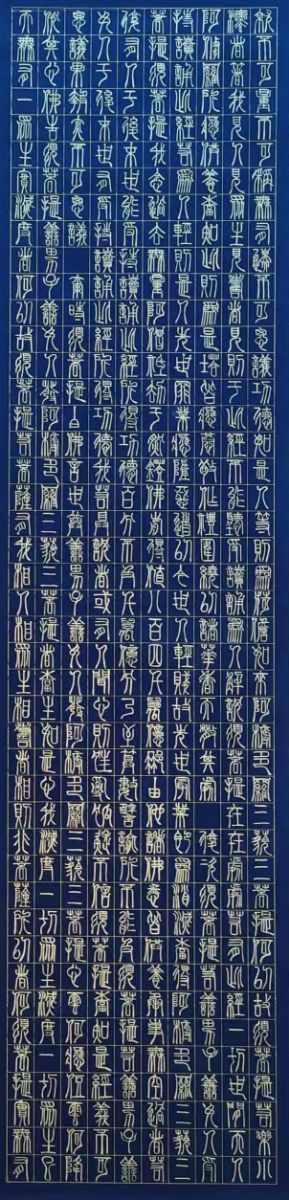 就不可量不可稱無有邊不可思議功德如是人等則為荷擔如來阿耨多羅三藐三菩提何以故須菩提若樂小
法者著我見人見眾生見壽者見則于此經不能聽受讀誦為人解說須菩提在在處處若有此經一切世間天人
阿修羅所應供養當知此處則為是塔皆應恭敬作禮圍繞以諸華香而散其處 復次須菩提善男子善女人受
持讀誦此經若為人輕賤是人先世罪業應墮惡道以今世人輕賤故先世罪業則為消滅當得阿耨多羅三藐三
菩提須菩提我念過去無量阿僧祇劫于然燈佛前得值八百四千萬億那由他諸佛悉皆供養承事無空過者若
復有人于後末世能受持讀誦此經所得功德百分不及千萬億分乃至算數譬喻所不能及須菩提若善男子善
女人于後末世有受持讀誦此經所得功德我若具說者或有人聞心則狂亂狐疑不信須菩提當知是經義不可
思議果報亦不可思議 爾時須菩提白佛言世尊善男子善女人發阿耨多羅三藐三菩提心云何應住云何降
伏其心佛告須菩提善男子善女人發阿耨多羅三藐三菩提者當生如是心我滅度一切眾生滅度一切眾生已
而無有一眾生實滅度者何以故須菩提若菩薩有我相人相眾生相壽者相則非菩薩所以者何須菩提實無有